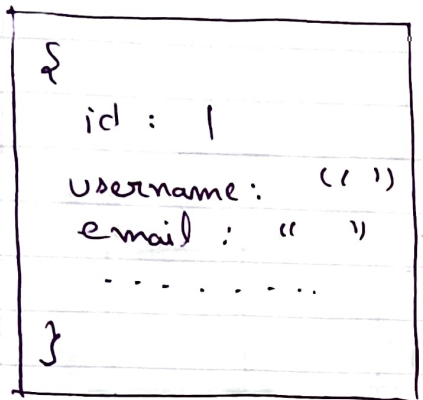 {
id : 1
username: " "
email : " "
. . . . . . . .
}